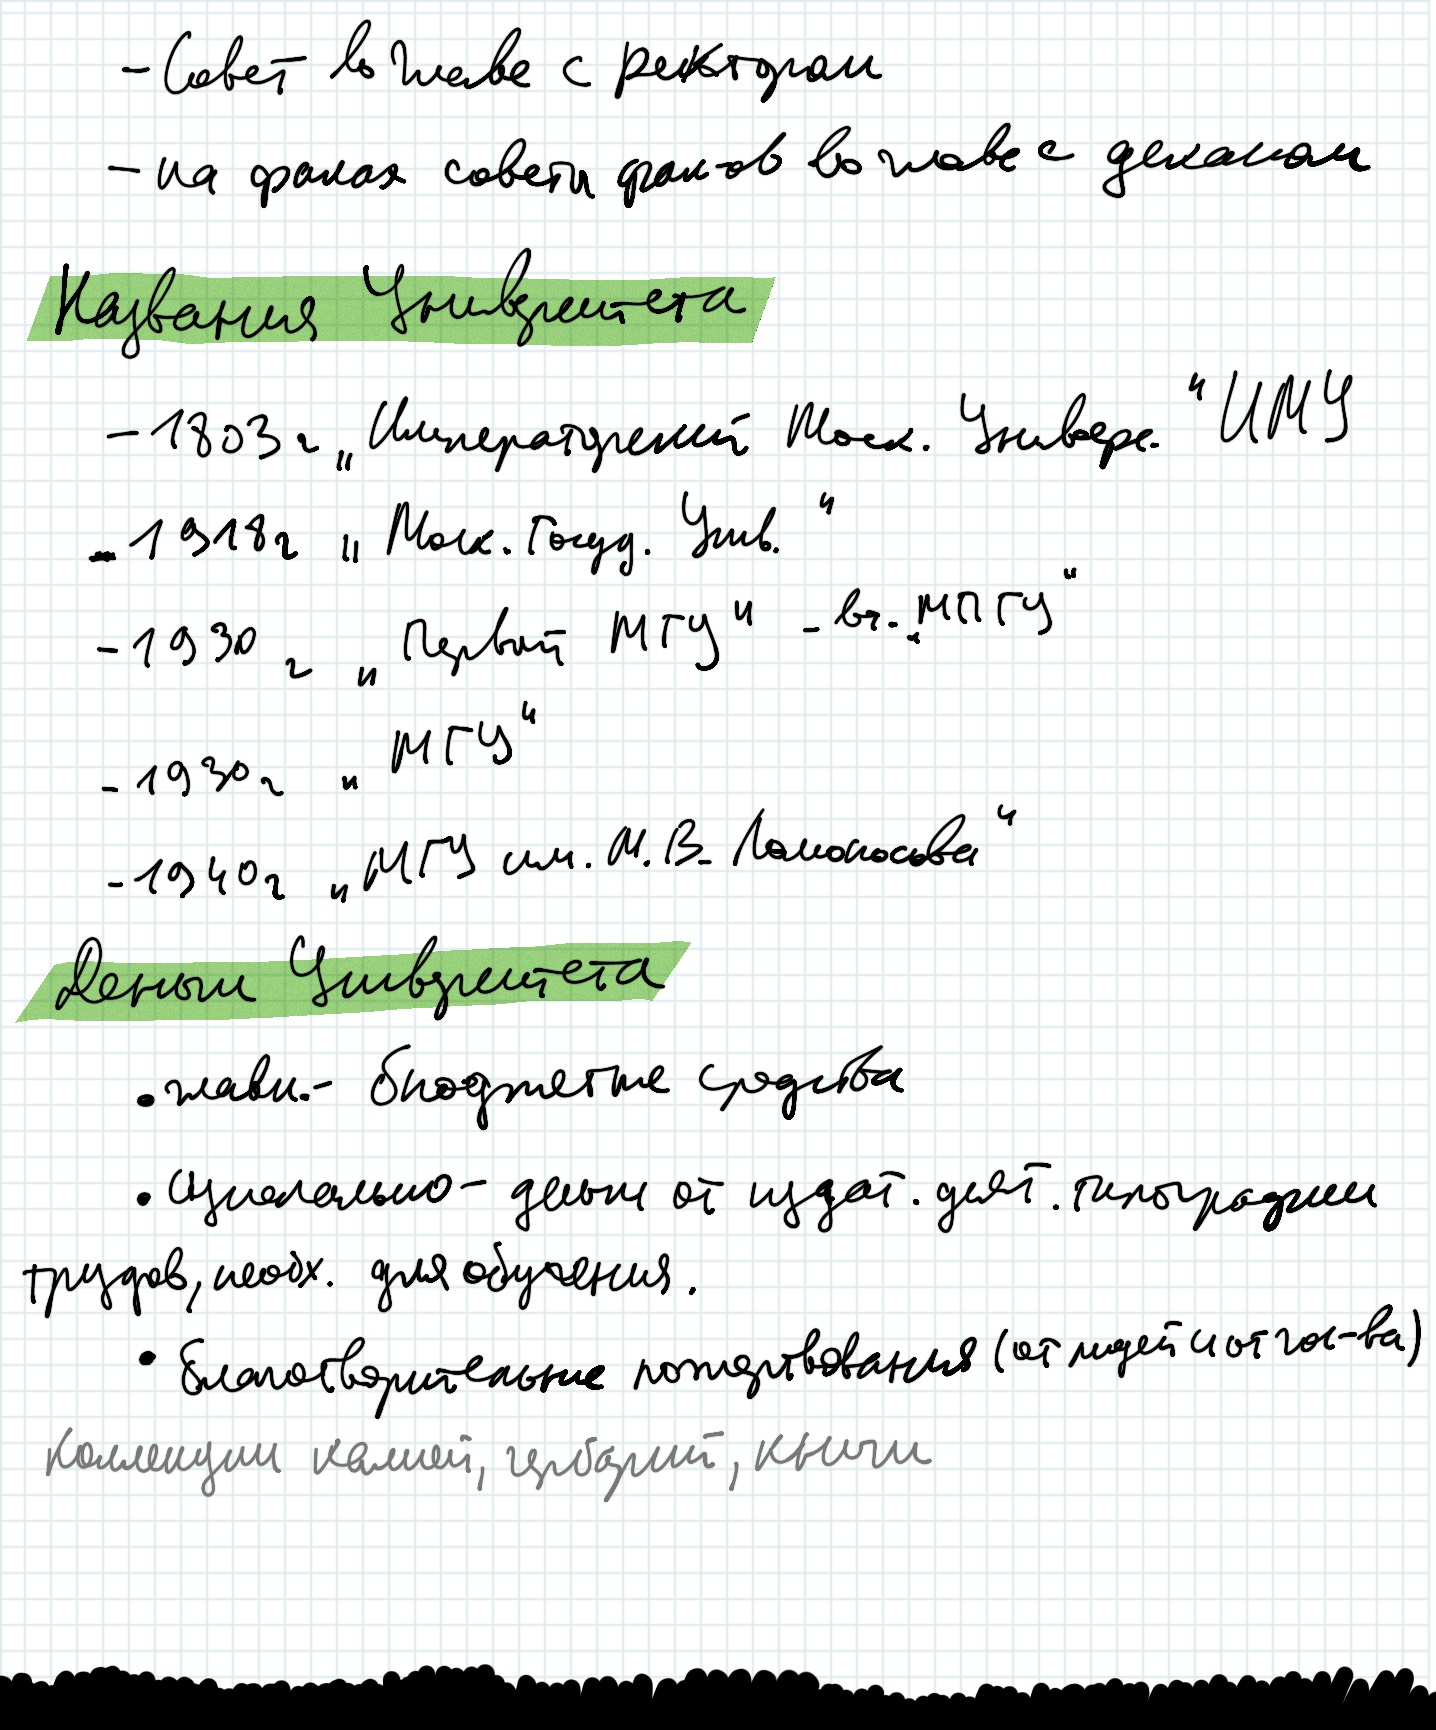 - Совет во главе с ректором
- на факах советы фак-ов во главе с деканом
Названия Университета
- 1803г „Императорский Моск. Универс.“ ИМУ
- 1918г „Моск. Госуд. Унив.“
- 1930г „Первый МГУ“ - вт. „МПГУ“
- 1930г „МГУ“
- 1940г „МГУ им. М.В. Ломоносова“
Деньги Университета
• главн. - бюджетные средства
• - деньги от издат. деят. типографии
трудов, необх. для обучения.
• Благотворительные пожертвования (от людей и от гос-ва)
Коллекции камней, гербарий, книги